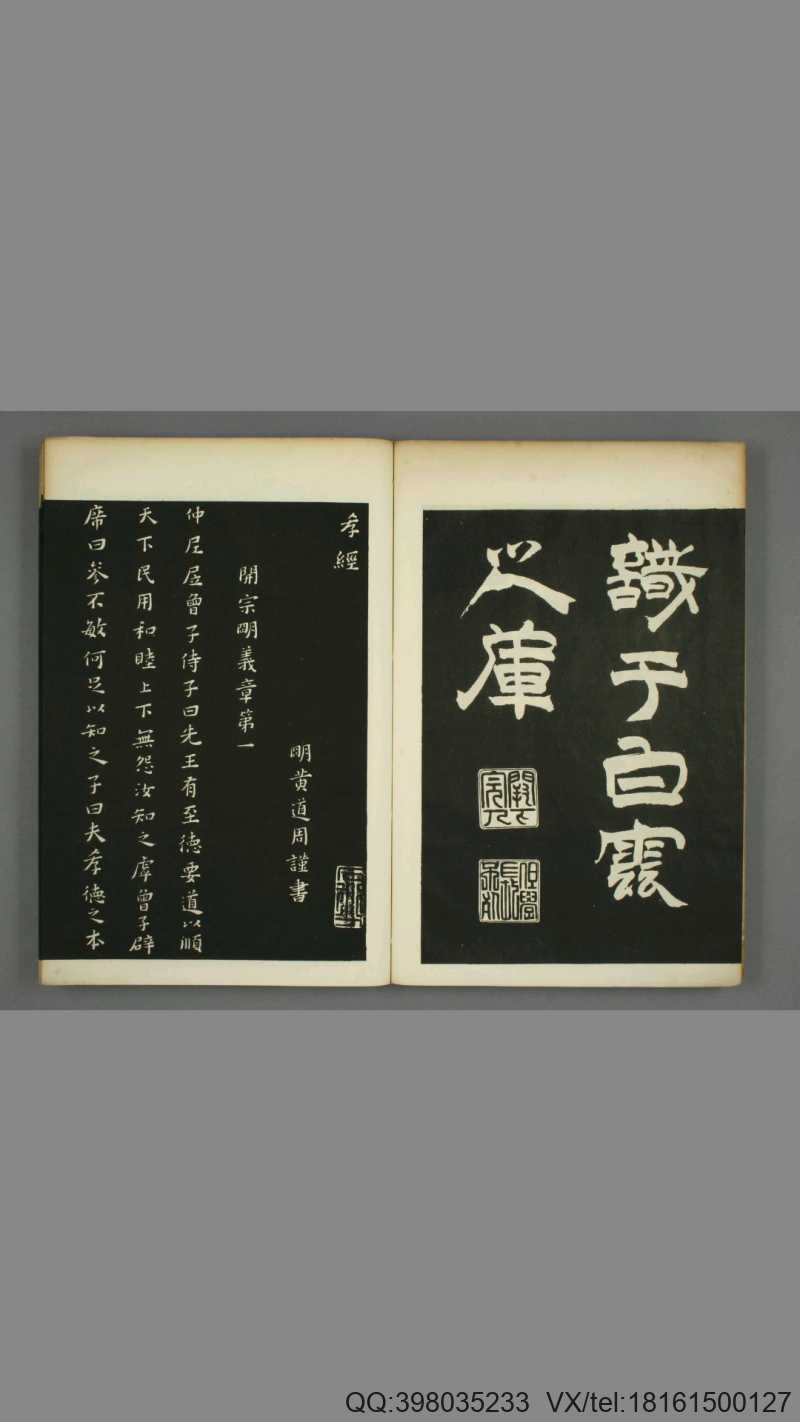 識于白雲
之庫
孝經
明黃道周謹書
開宗明義章第一
仲尼居曾子侍子曰先王有至德要道以順
天下民用和睦上下無怨汝知之虖曾子辟
席曰參不敏何足以知之子曰夫孝德之本
QQ:398035233 VX/tel:18161500127